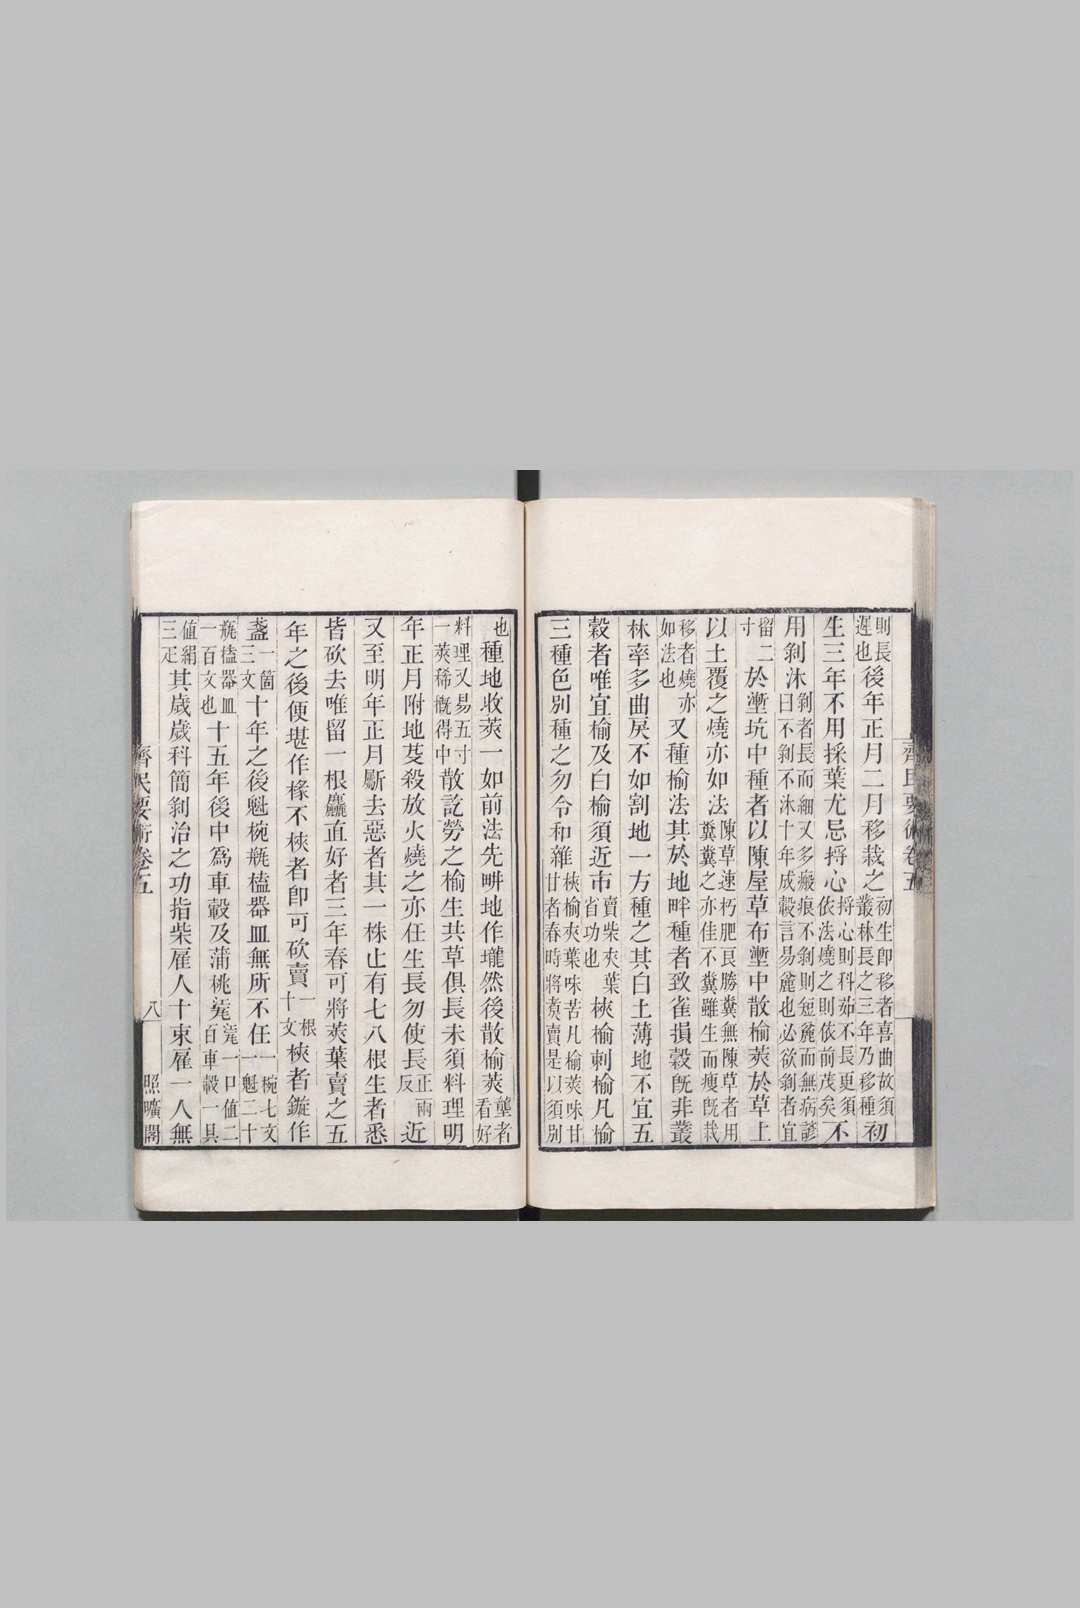 齊民要術卷五
則長遲也後年正月二月移栽之初生即移者喜曲故須叢林長之三年乃移種初
生三年不用採葉尤忌捋心捋心則科茹不長更須依法燒之則依前茂矣不
用剝沐剝者長而細又多瘢痕不剝則短麄而無病諺曰不剝不沐十年成轂言易麄也必欲剝者宜
留二寸於塹坑中種者以陳屋草布塹中散榆莢於草上
以土覆之燒亦如法陳草速朽肥良勝糞無陳草者用糞糞之亦佳不糞雖生而瘦旣栽
移者燒亦如法也又種榆法其於地畔種者致雀損穀旣非叢
林率多曲戾不如割地一方種之其白土薄地不宜五
穀者唯宜榆及白榆須近市賣柴夾葉省功也梜榆刺榆凡榆
三種色別種之勿令和雜梜榆夾葉味苦凡榆莢味甘甘者春時將煑賣是以須別
也種地收莢一如前法先畊地作壠然後散榆莢壟者看好
料理又易五寸一莢稀概得中散訖勞之榆生共草俱長未須料理明
年正月附地芟殺放火燒之亦任生長勿使長正兩反近
又至明年正月斸去惡者其一株止有七八根生者悉
皆砍去唯留一根麤直好者三年春可將莢葉賣之五
年之後便堪作椽不梜者卽可砍賣一根十文梜者鏇作
盞一箇三文十年之後魁椀甁榼器皿無所不任一椀七文一魁二十
甁榼器皿一百文也十五年後中爲車轂及蒲桃㼜㼜一口値二百車轂一具
値絹三疋其歲歲科簡剝治之功指柴雇人十束雇一人無
齊民要術卷五 八 照曠閣